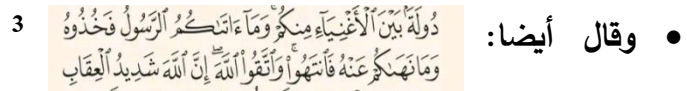 • وقال أيضا:
دُولَةَۢ بَيۡنَ ٱلۡأَغۡنِيَآءِ مِنكُمۡۚ وَمَآ ءَاتَىٰكُمُ ٱلرَّسُولُ فَخُذُوهُ 3
وَمَا نَهَىٰكُمۡ عَنۡهُ فَٱنتَهُواْۚ وَٱتَّقُواْ ٱللَّهَۖ إِنَّ ٱللَّهَ شَدِيدُ ٱلۡعِقَابِ